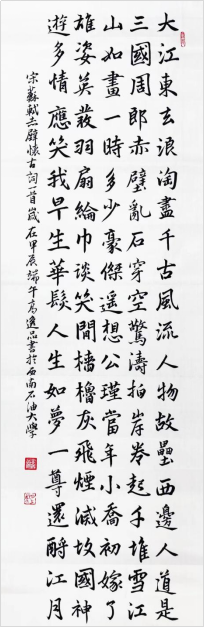 大江東去浪淘盡千古風流人物故壘西邊人道是
三國周郎赤壁亂石穿空驚濤拍岸卷起千堆雪江
山如畫一時多少豪傑遥想公瑾當年小喬初嫁了
雄姿英發羽扇綸巾談笑間檣櫓灰飛煙滅故國神
遊多情應笑我早生華髮人生如夢一尊還酹江月
宋蘇軾赤壁懷古詞一首歲在甲辰端午高逸品書於西南石油大學